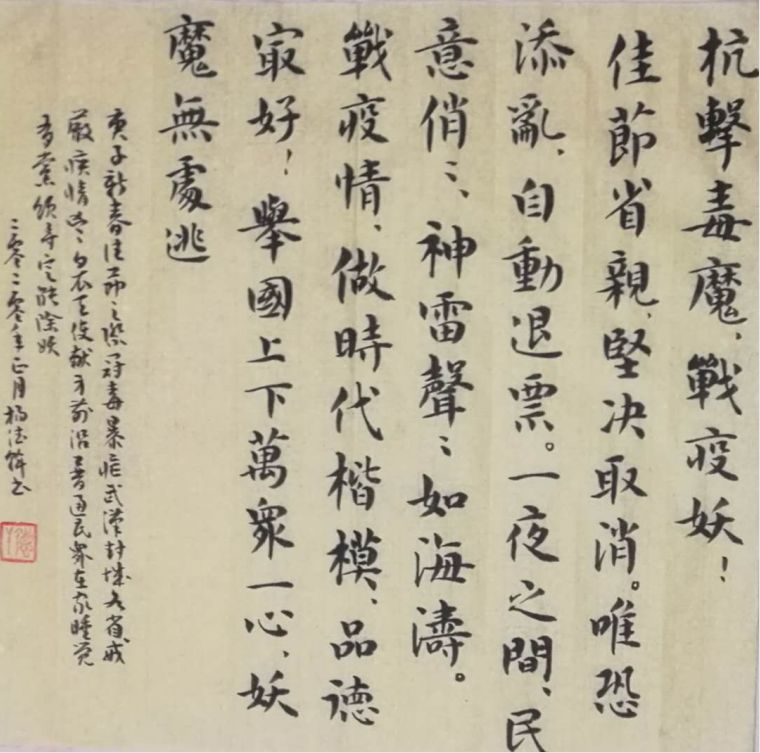 抗擊毒魔、戰疫妖！
佳節省親、堅决取消。唯恐
添亂、自動退票。一夜之間、民
意俏ミ、神雷聲ミ如海濤。
戰疫情、做時代楷模、品德
最好！舉國上下萬衆一心、妖
魔無處逃
庚子新春佳节之際冠毒暴虐武漢封城各省戒
嚴疾情白衣天使献身前沿普通民衆在家睡覺
有党領导定能除妖
二零二零年正月楊德书